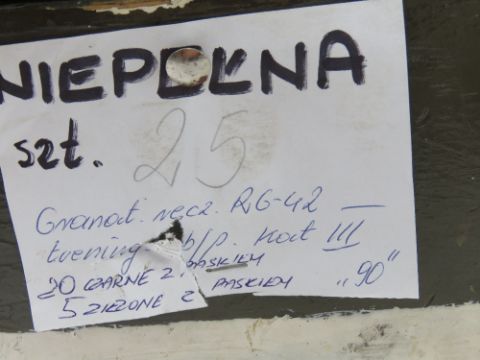 NIEPEŁNA
szt. 25
Granat. ręcz. RG-42 —
trening. b/p. Kat III
20 CZARNE Z. PASKIEM
5 ZIELONE Z PASKIEM „90"